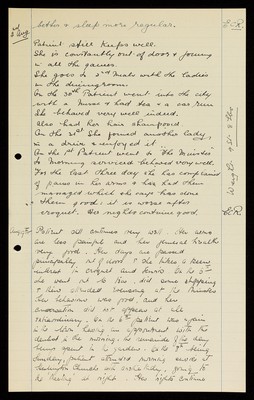 baths & sleep more regular.
2nd Aug. Patient still keeps well.
She is constantly out of doors & joining
in all the games.
She goes to 2nd Meals with the ladies
in the diningroom.
On the 30th Patient went into the city
with a Nurse & had tea & a car run
She behaved very well indeed.
Also had her hair shampooed
On the 31st She joined another lady
in a drive & enjoyed it.
On the 1st Patient went to the Minster
to morning service & behaved very well.
For the last three days she has complained
of pains in her arms & has had them
massaged which she says has done
them good; it is worse after
croquet. Her nights continue good.
E.R.
Weight
E.R.
Patient still continues very well. Her arms
are less painful and her general health
very good. Her days are passed
principally out of doors & she takes a keen
interest in croquet and tennis. On the 5th
she went out to tea, did some shopping
& then attended evensong at the Minster
her behaviour was good, and her
conversation did not appear at all
extraordinary. On the 6th patient was again
in to York having an appointment with the
dentist in the morning, the remainder of the day
being spent in the garden. On the 8th being
Sunday, patient attended morning service at
Heslington Church with another lady, going to
the "Meeting" at night. Her nights continue